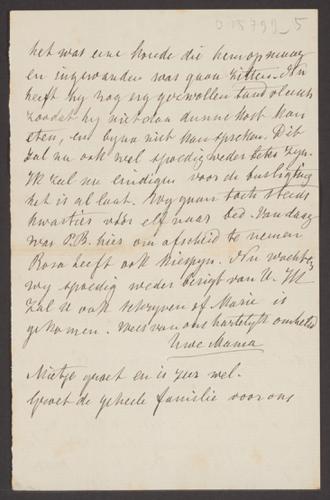 D 15799_5
het was eene koude die hem op maag
en ingewanden was gaan zitten. Nu
heeft hy nog erg gezwollen tandvleesch
zoodat hy niet dan dunne kost kan
eten, en byna niet kan spreken. Dit
zal nu ook wel spoedig weder beter zyn.
Ik zal nu eindigen voor de buslichting
het is al laat. Wy gaan toch steeds
kwartier vóór elf naar bed. Van daag
was P.B. hier om afscheid te nemen
Rosa heeft ook kiespyn. Nu wachten
wy spoedig weder berigt van U. Ik
zal U ook schryven of Marie is
gekomen. Wees van ons hartelijk omhelsd
Uwe Mama
Mietje groet en is zeer wel.
Groet de geheele familie voor ons